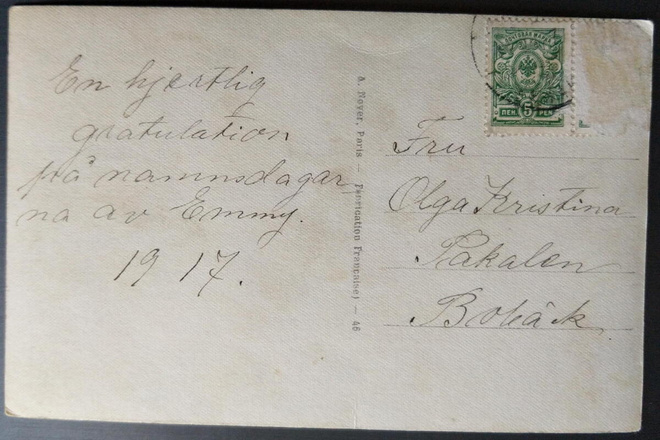 En hjertlig
gratulation
på namnsdagar
na av Emmy.
1917.
A. Noyer, Paris — Fabrication Française) — 46
ПОЧТОВАЯ МАРКА
5
ПЕН. 5 PEN.
Fru
Olga Kristina
Pakalen